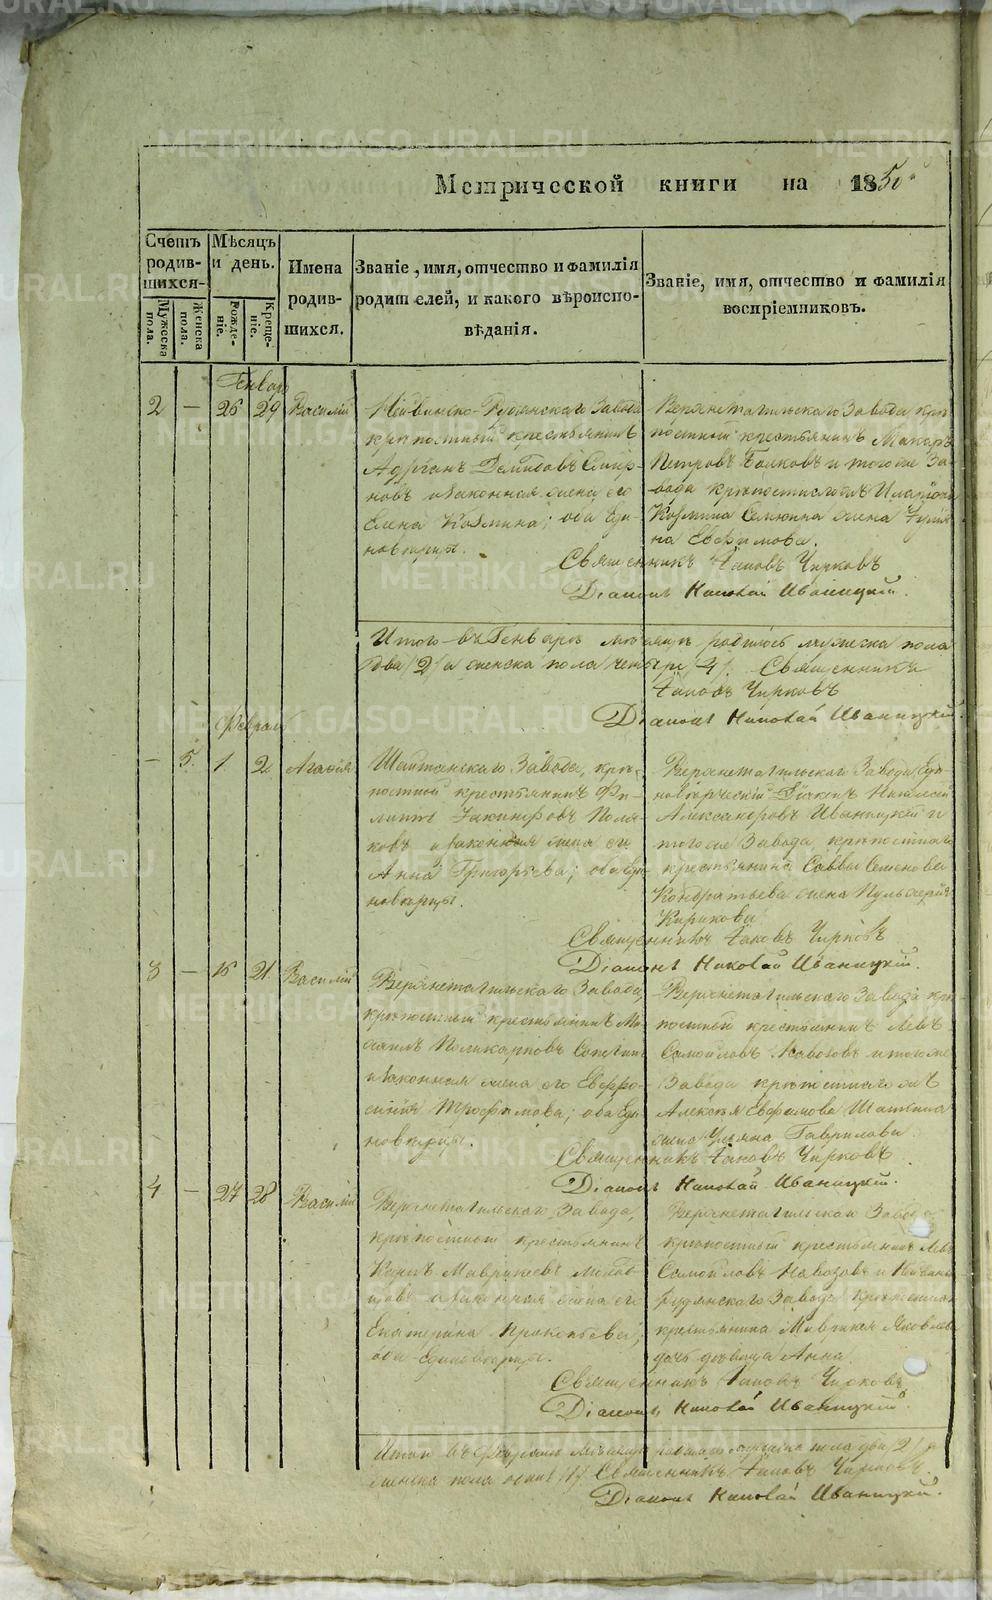 Метрической книги на 1850й
Счетъ родив-шихся
Мужеска пола.
Женска пола.
Мѣсяцъ и день.
Рожде-ніе.
Креще-ніе.
Имена родив-шихся.
Званіе, имя, отчество и фамилія
родителей, и какого вѣроиспо-
вѣданія.
Званіе, имя, отчество и фамилія
воспріемниковъ.
Генваря
2 — 26 29 Василій
Нейвинско-Рудянскаго Завода
крѣпостный крестьянинъ
Адріанъ Демидовъ Смир-
новъ и законная жена его
Елена Козмина; оба Еди-
новѣрцы.
Верхнетагильскаго Завода крѣ-
постный крестьянинъ Макаръ
Петровъ и того же За-
вода крѣпостнаго
Козмина жена
на Евфимова.
Священникъ Іаковъ Чирковъ
Діаконъ Николай Иваницкій.
Итого въ Генварѣ мѣсяцѣ родилось мужеска пола
два /2/ а женска пола четыре /4/. Священникъ
Іаковъ Чирковъ
Діаконъ Николай Иваницкій.
Февраль
— 5. 1 2 Агафія
Шайтанскаго Завода, крѣ-
постный крестьянинъ Фи-
липпъ Поля-
ковъ и законная жена его
Анна Григорьева; оба Еди-
новѣрцы.
Верхнетагильскаго Завода, Еди-
новѣрческій Николай
Александровъ Иваницкій и
того же Завода, крѣпостнаго
крестьянина Саввы Семенова
Кондратьева жена Пульхерія
Кирикова
Священникъ Іаковъ Чирковъ
Діаконъ Николай Иваницкій.
3 — 16 21 Василій
Верхнетагильскаго Завода,
крѣпостный крестьянинъ Ми-
хаилъ Поликарповъ
и законная жена его Евфро-
синія Трофимова; оба Еди-
новѣрцы.
Верхнетагильскаго Завода крѣ-
постный крестьянинъ Левъ
Самойловъ и того же
Завода крѣпостнаго
Алексѣя Евфимова
жена Ульяна Гаврилова
Священникъ Іаковъ Чирковъ
Діаконъ Николай Иваницкій.
4 — 27 28 Василій
Верхнетагильскаго Завода,
крѣпостный крестьянинъ
Карпъ Маврикіевъ
и законная жена его
Екатерина Прокопьева;
оба Единовѣрцы.
Верхнетагильскаго Завода
крѣпостный крестьянинъ Левъ
Самойловъ и Нейвинс
Рудянскаго Завода крѣпостнаго
крестьянина Маврикія Яковлева
дочь дѣвица Анна
Священникъ Іаковъ Чирковъ
Діаконъ Николай Иваницкій.
Итого въ Февралѣ мѣсяцѣ родилось мужеска пола два /2/ а
женска пола одна /1/ Священникъ Іаковъ Чирковъ
Діаконъ Николай Иваницкій.
METRIKI.GASO-URAL.RU